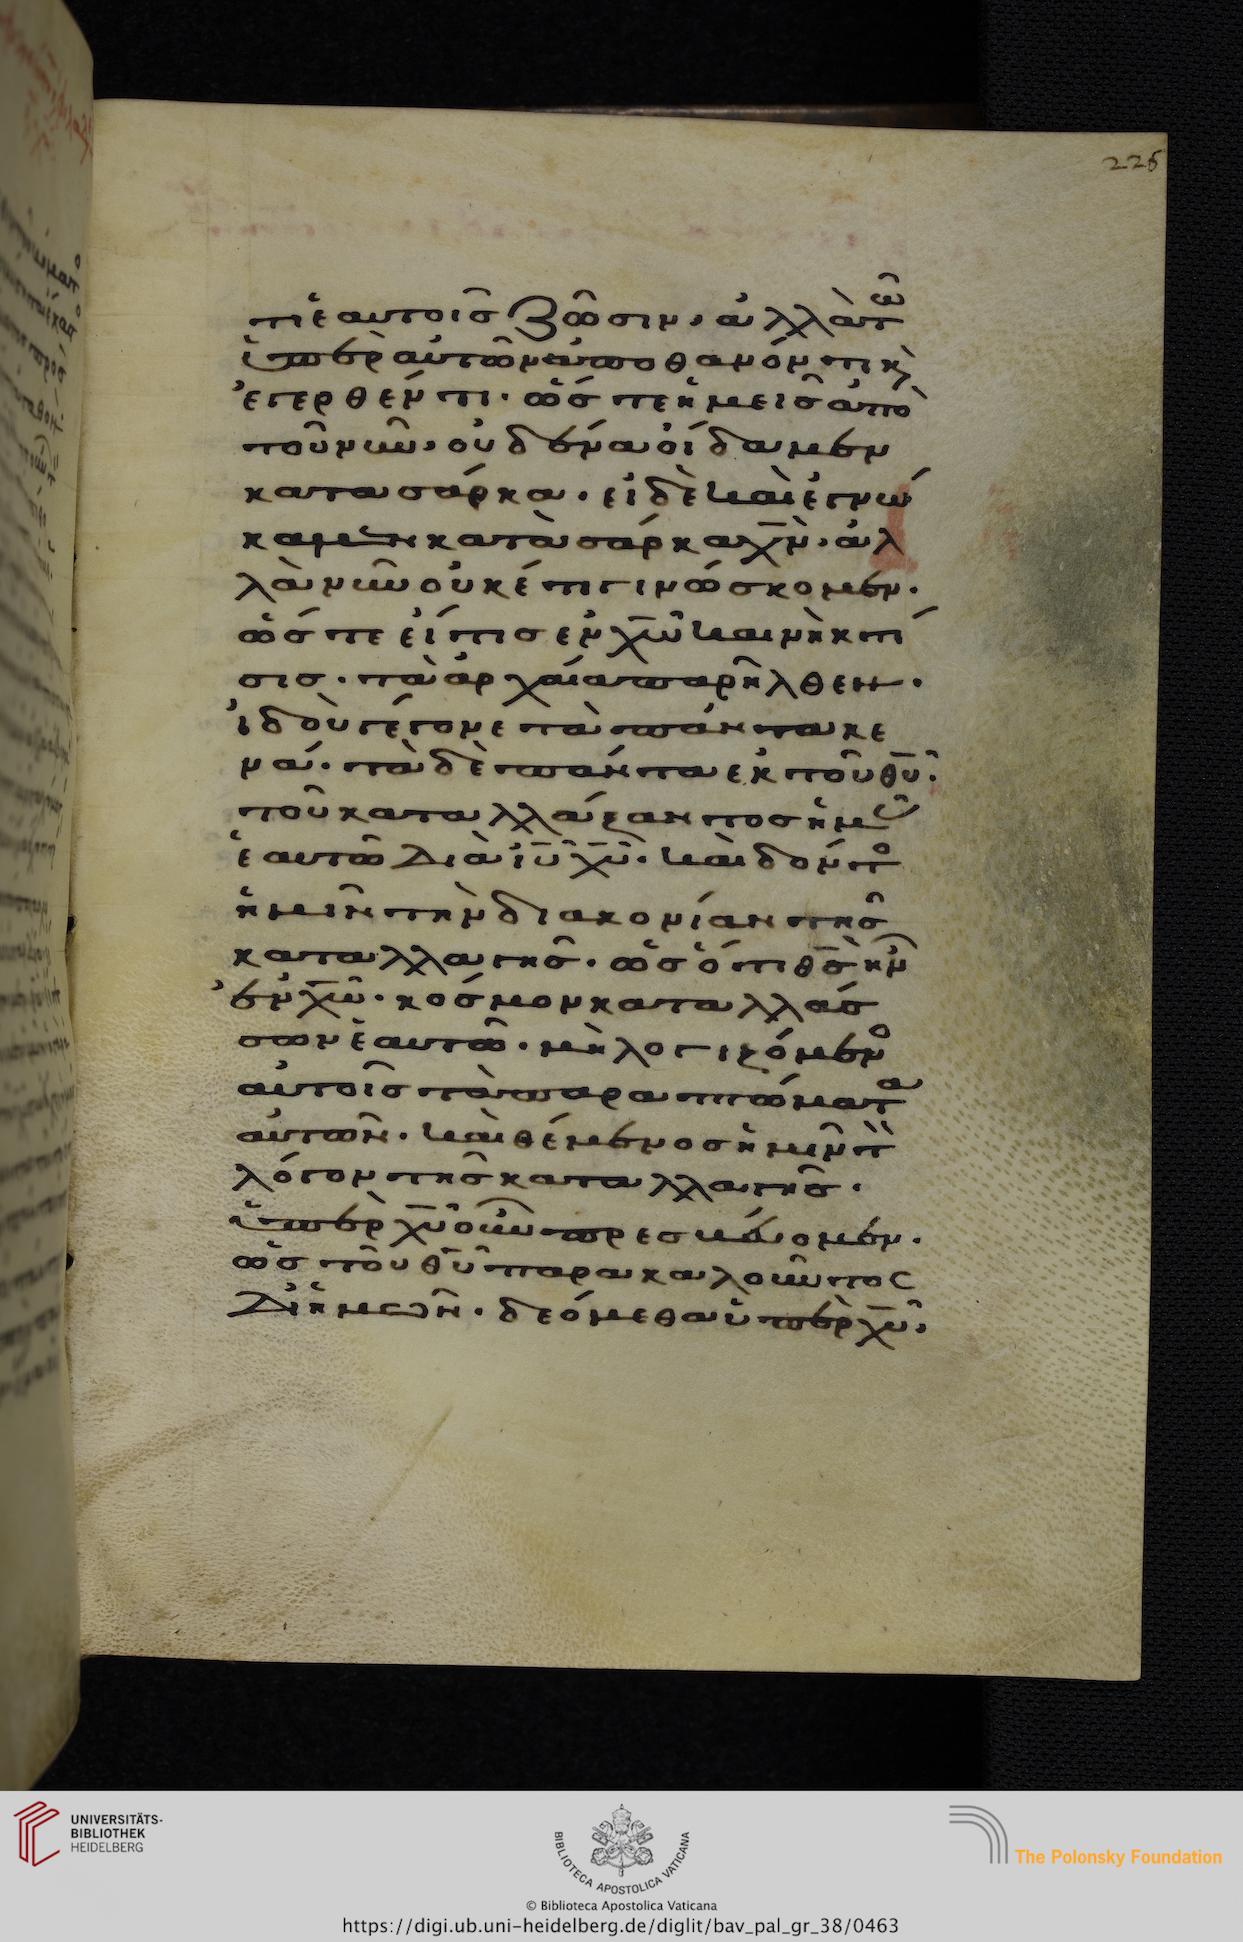 225
τι ἑαυτοῖς ζῶσιν, ἀλλὰ τῶ
ὑπὲρ αὐτῶν ἀποθανόντι κὶ
ἐγερθέντι. ὥστε ἡμεῖς ἀπὸ
τοῦ νῦν, οὐδένα οἴδαμεν
κατα σάρκα. εἰ δὲ καὶ ἐγνώ
καμεν κατὰ σάρκα χν, ἀλ
λὰ νῦν οὐκέτι γινώσκομεν.
ὥστε εἴ τις ἐν χω καινὴ κτί
σις. τὰ ἀρχαῖα παρῆλθεν.
ἰδοὺ γέγονε τὰ πάντα κε
νά. τὰ δὲ πάντα ἐκ τοῦ θυ.
τοῦ καταλλάξαντος ἡμᾶς
ἑαυτῶ διὰ ιυ χυ. καὶ δόντος
ἡμῖν τὴν διακονίαν τῆς
καταλλαγῆς. ὡς ὅτι θς ἦν
ἐν χω. κόσμον καταλλάσ
σων ἑαυτῶ. μὴ λογιζόμενος
αὐτοῖς τὰ παραπτώματα
αὐτῶν. καὶ θέμενος ἡμῖν τὸν
λόγον τῆς καταλλαγῆς.
ὑπὲρ χυ οὖν πρεσβεύομεν.
ὡς τοῦ θυ παρακαλοῦντος
δι ἡμῶν. δεόμεθα ὑπὲρ χυ,
UNIVERSITÄTS-
BIBLIOTHEK
HEIDELBERG
BIBLIOTECA APOSTOLICA VATICANA
The Polonsky Foundation
© Biblioteca Apostolica Vaticana
https://digi.ub.uni-heidelberg.de/diglit/bav_pal_gr_38/0463